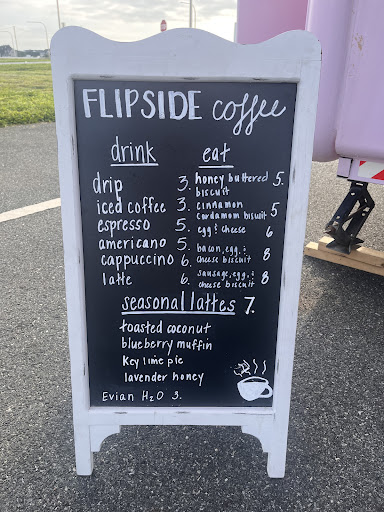 FLIPSIDE coffee
drink
drip 3.
iced coffee 3.
espresso 5.
americano 5.
cappuccino 6.
latte 6.
eat
honey buttered 5.
biscuit
cinnamon
cardamom biscuit 5
egg & cheese 6
bacon, egg, &
cheese biscuit 8
sausage, egg, &
cheese biscuit 8
seasonal lattes 7.
toasted coconut
blueberry muffin
Key lime pie
lavender honey
Evian H2O 3.